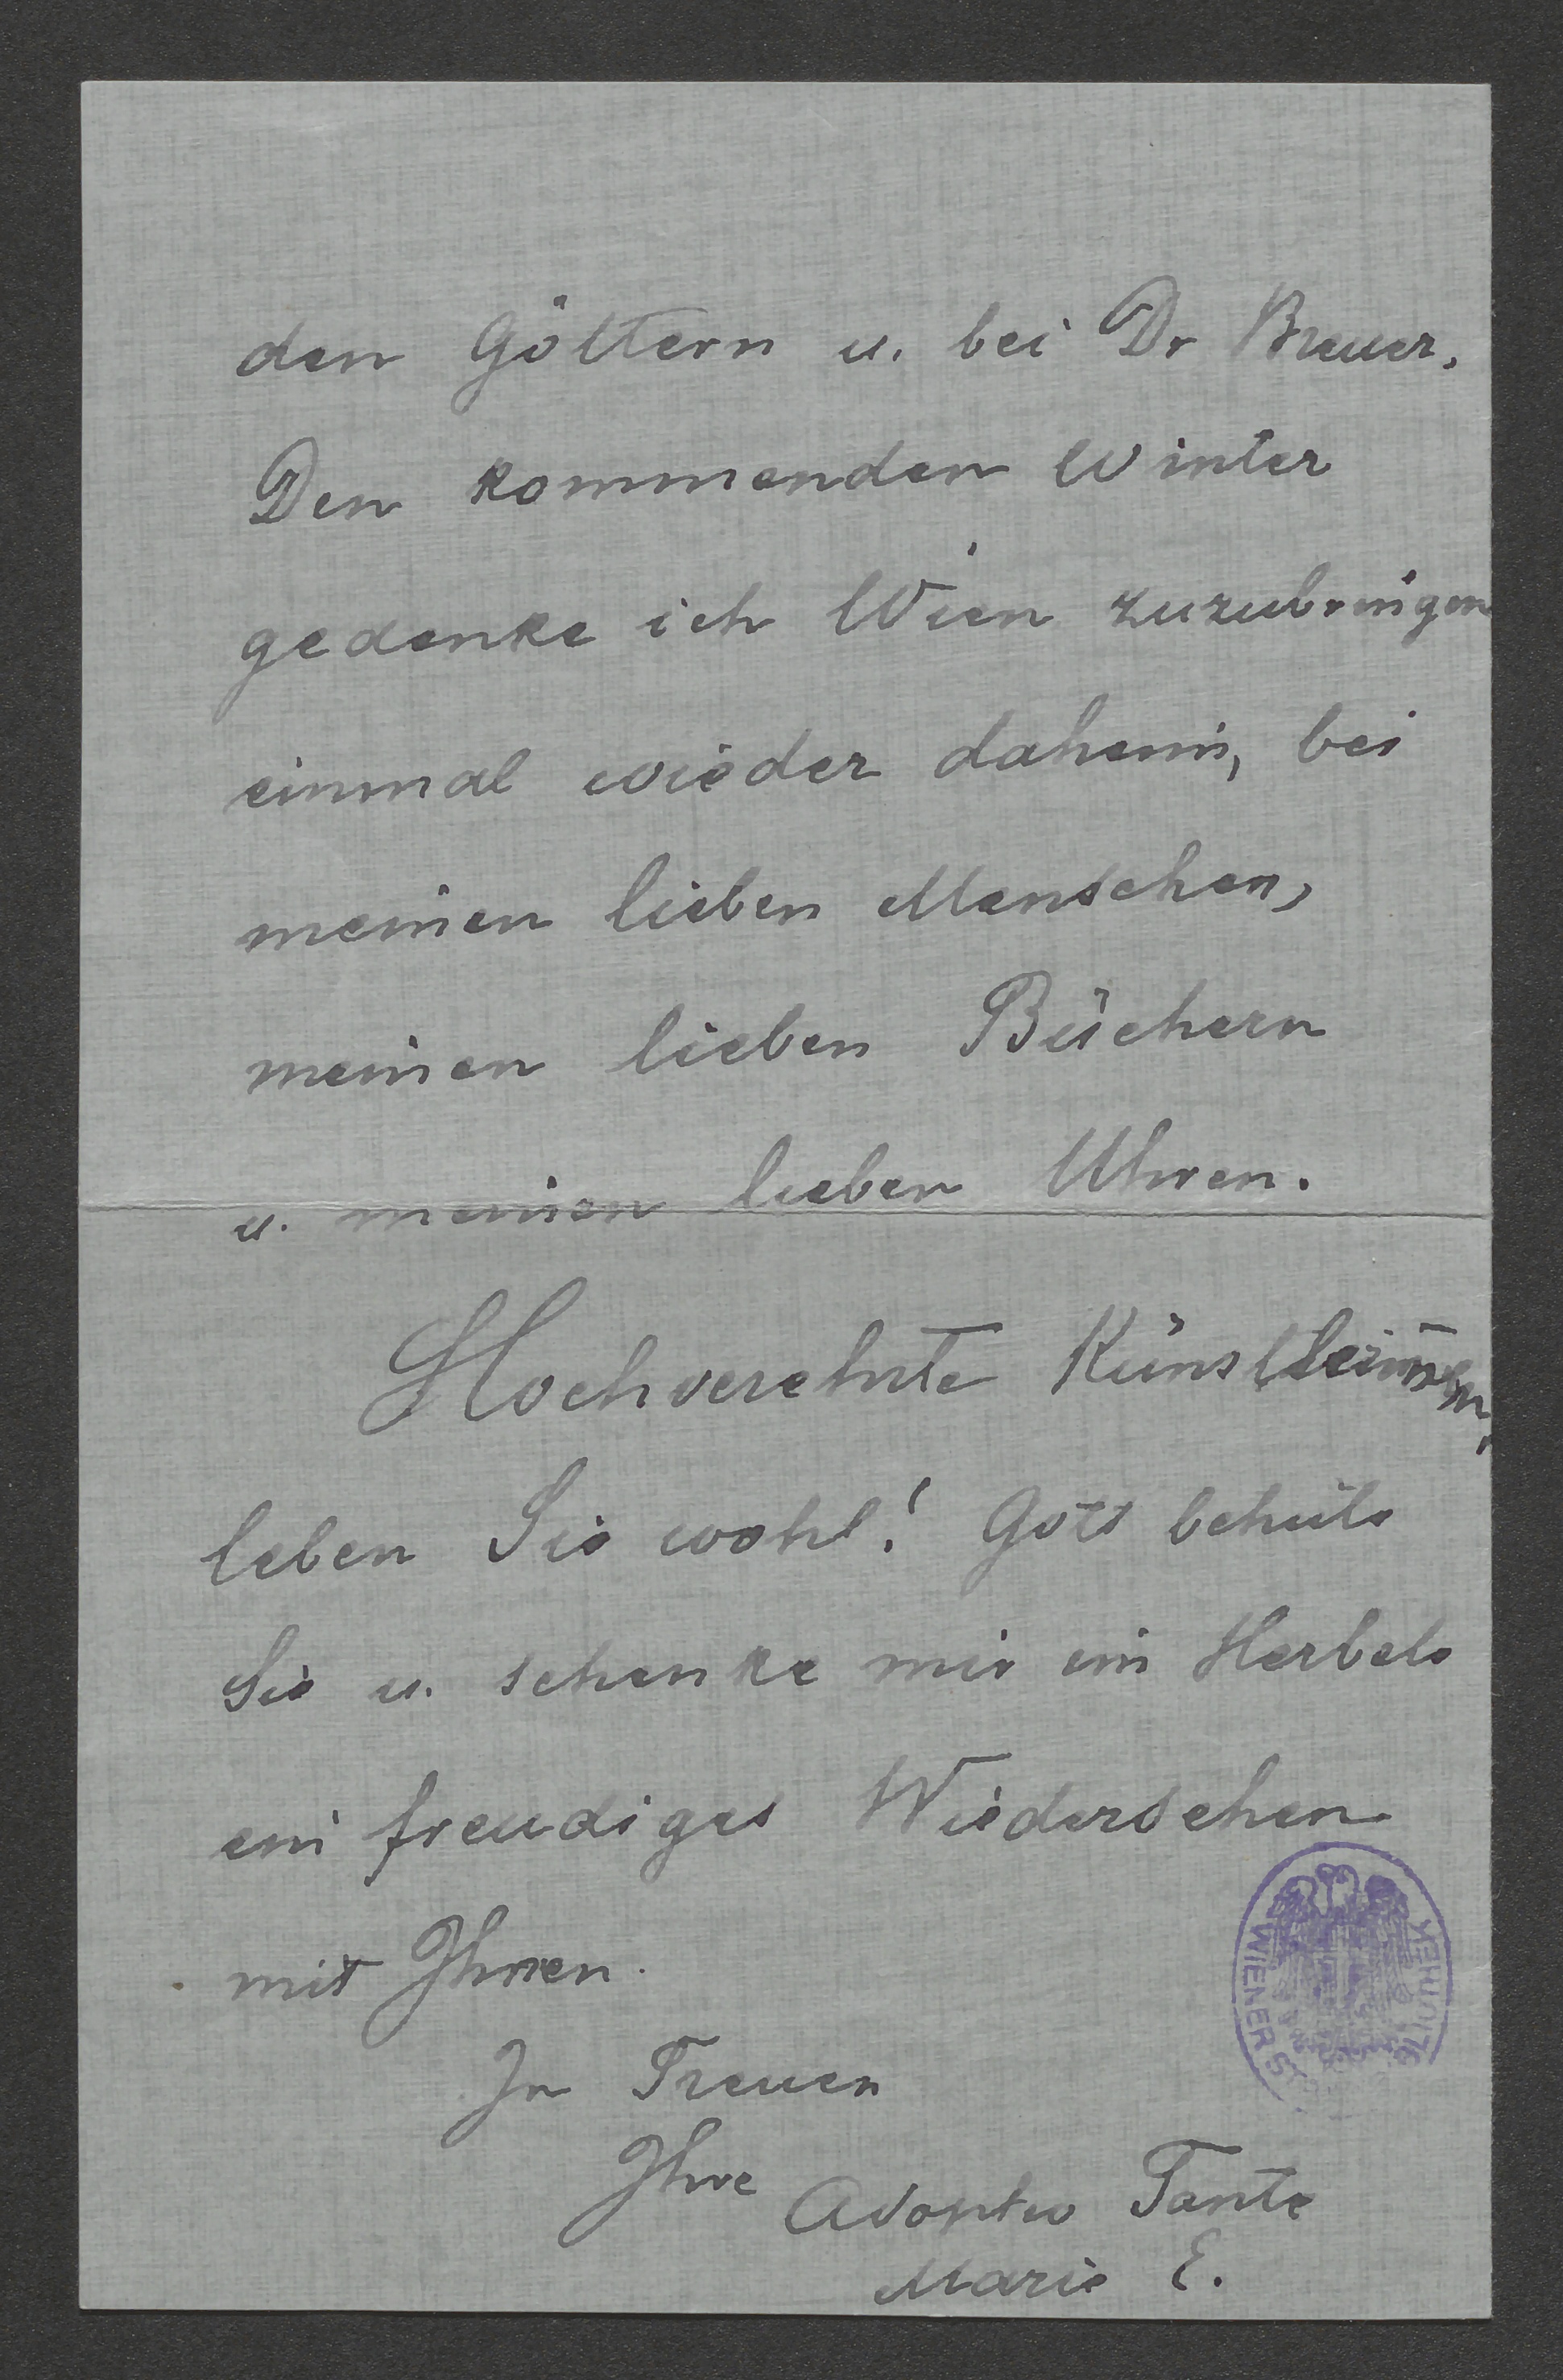 den Göttern u. bei Dr Breuer.
Den kommenden Winter
gedenke ich Wien zuzubringen
einmal wieder daheim, bei
meinen lieben Menschen,
meinen lieben Büchern
u. meinen lieben Uhren.
Hochverehrte Künstlerinen,
leben Sie wohl! Gott behüte
Sie u. schenke mir im Herbste
ein freudiges Wiedersehen
mit Ihnen.
In Treuen
Ihre Adoptiv Tante
Marie E.
WIENER